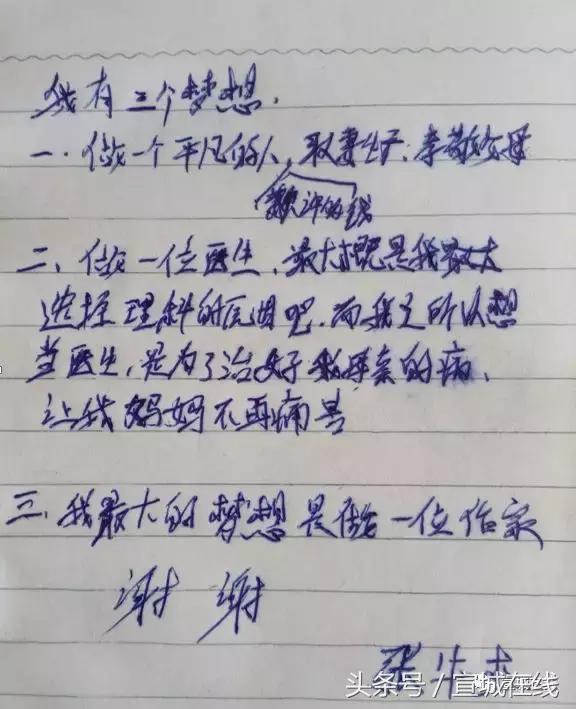 我有三个梦想.
一.做一个平凡的人,取妻生子,孝敬父母
挣许的钱
二、做一位医生,最大概是我最大
选择理科的原因吧.而我之所以想
当医生,是为了治好我母亲的病、
让我妈妈不再痛苦
三、我最大的梦想是做一位作家
谢谢
张
头条号/宣城在线